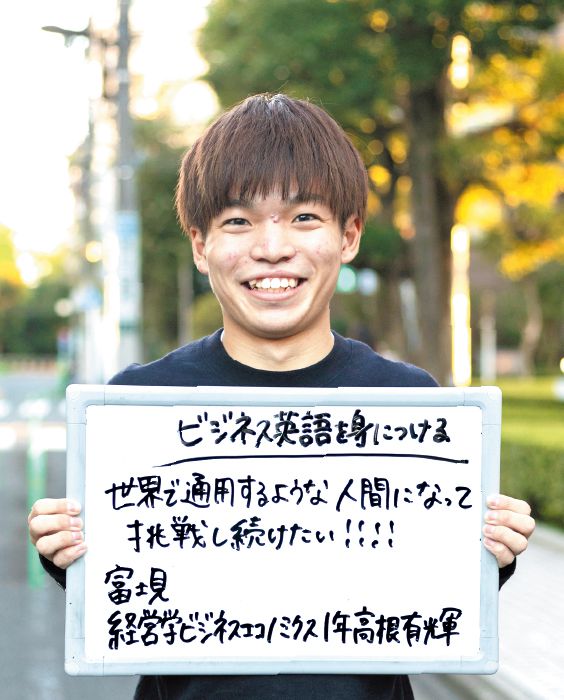 ビジネス英語を身につける
世界で通用するような人間になって
挑戦し続けたい!!!!
富士見
経営学ビジネスエコノミクス1年高根有輝